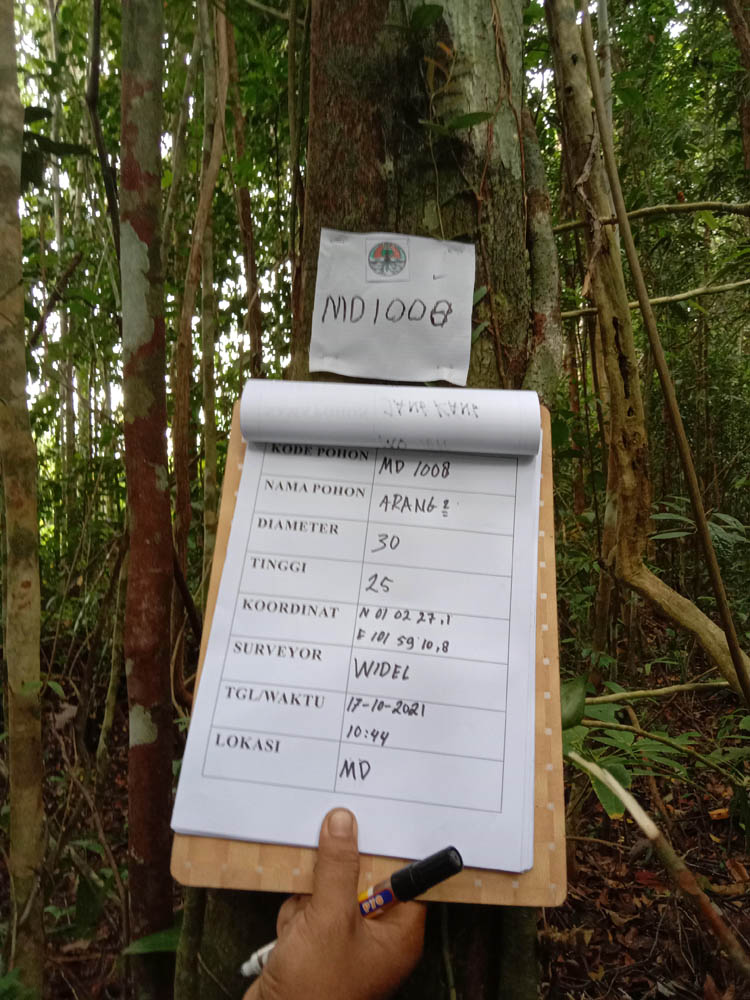 MD1008
KODE POHON MD 1008
NAMA POHON ARANG 2
DIAMETER 30
TINGGI 25
KOORDINAT N 01 02 27,1
E 101 59 10,8
SURVEYOR WIDEL
TGL/WAKTU 17-10-2021
10:44
LOKASI MD
Pro